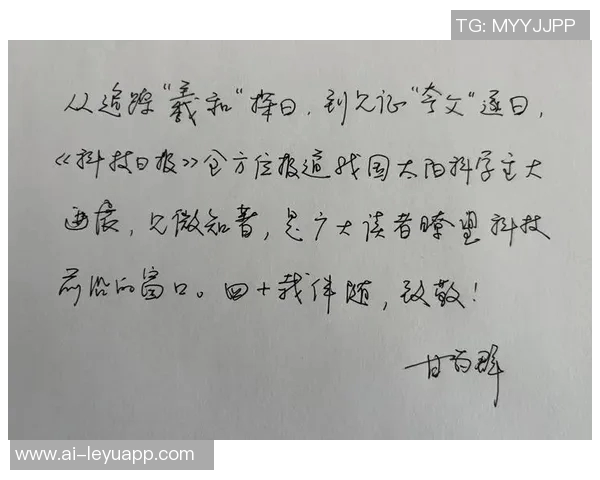 TG: MYYJJPP
从追踪“羲和”探日，到见证“夸父”逐日，
《科技日报》全方位报道我国太阳科学重大
进展，见微知著，是广大读者瞭望科技
前沿的窗口。四十载伴随，致敬！
甘为群
www.ai-leyuapp.com